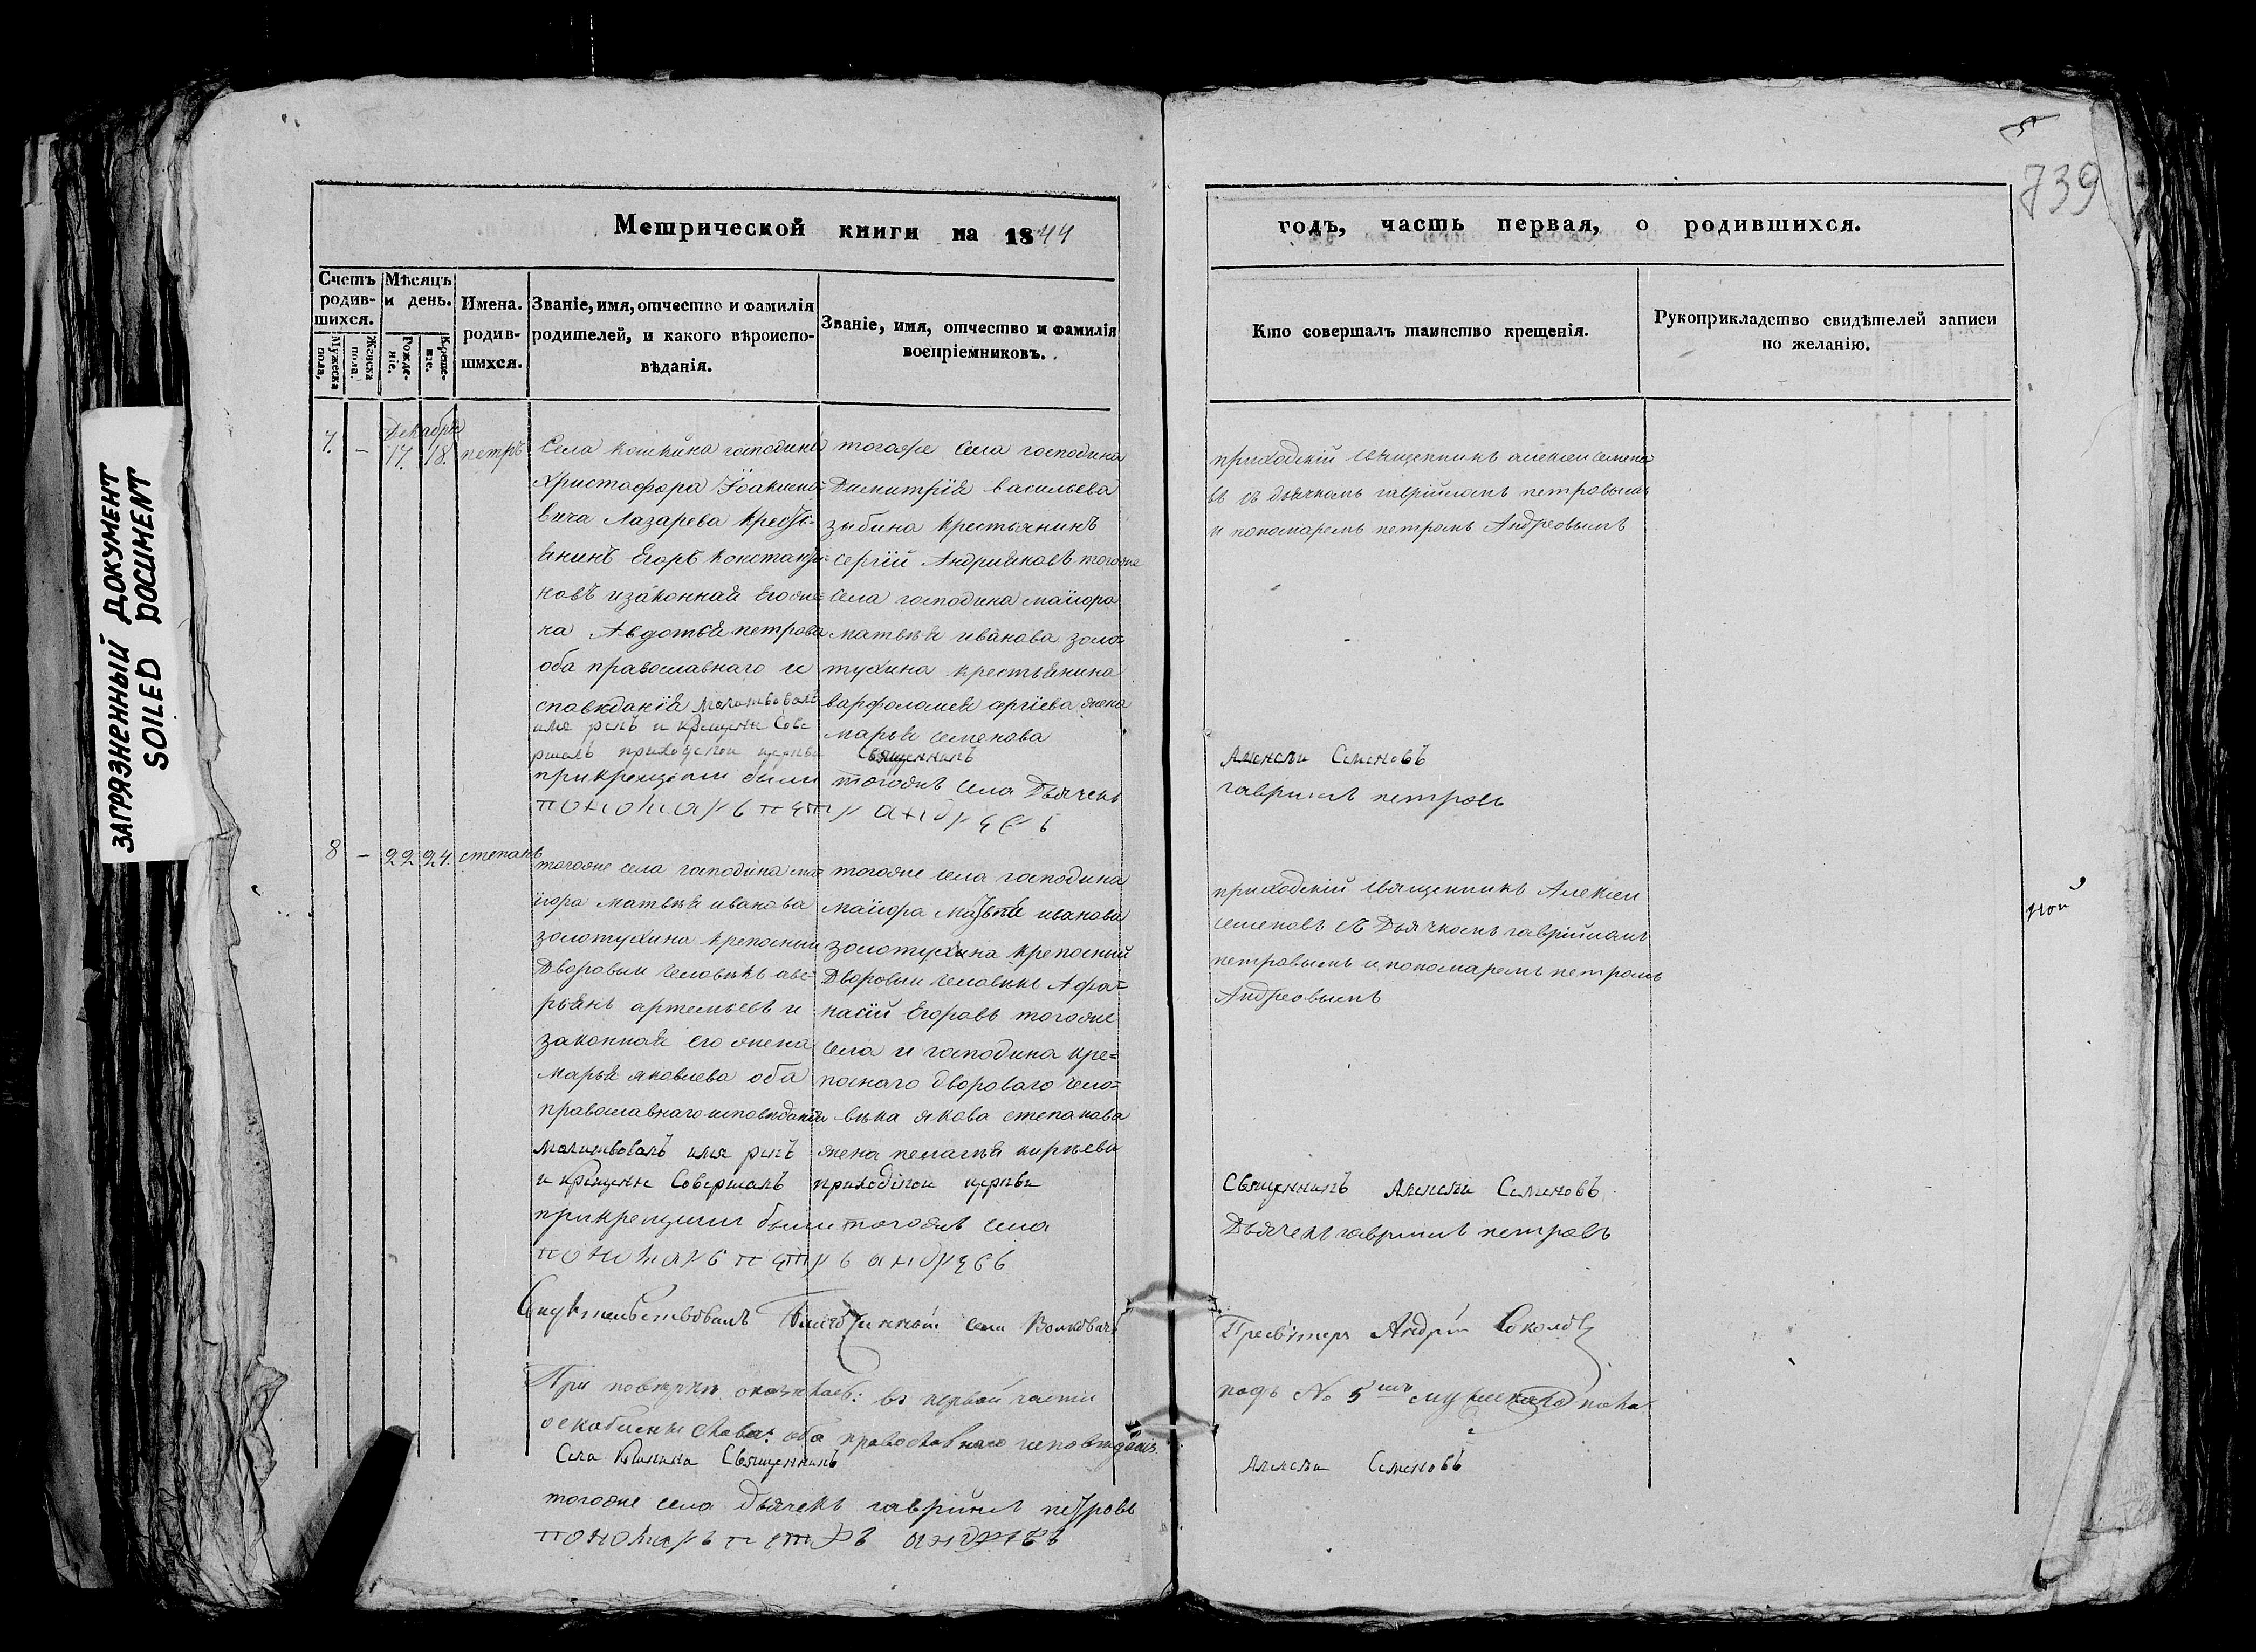 ЗАГРЯЗНЕННЫЙ ДОКУМЕНТ
SOILED DOCUMENT
739
Метрической книги на 1844
годъ, часть первая, о родившихся.
Счетъ родив-шихся.
Мужеска пола,
Женска пола.
Мѣсяцъ и день.
Рожде-ніе.
Креще-ніе.
Имена. родив-шихся.
Званіе, имя, отчество и фамилія
родителей, и какого вѣроиспо-
вѣданія.
Званіе, имя, отчество и фамилія
воспріемниковъ.
Кто совершалъ таинство крещенія.
Рукоприкладство свидѣтелей записи
по желанію.
7. – Декабря 17. 18. петръ
Села кошкина господина
Христофора Іоакимо-
вича Лазарева кресть-
янинъ Егоръ константи-
новъ изаконная Его же-
на Авдотья петрова
оба православнаго и
споведанія молитвовалъ
имя рекъ и крещение Сове
ршалъ приходской церкви Священникъ
прикрещении были тогоже села Дьячекъ
пономарь петръ андреевъ
тогоже села господина
Димитрія васильева
зыбина крестьянинъ
сергій Андрияновъ тогоже
села господина маіора
матвея иванова золо-
тухина крестьянина
варфоломея сергіева жена
марья семенова
приходскій священникъ алексеи семено-
въ съ дьячкомъ гавріиломъ петровымъ
и пономаремъ петромъ Андреовымъ
Алексѣи Семеновъ
гавриилъ петровъ
8 – 22 24. степанъ
тогоже села господина ма
іора матвея иванова
золотухина крепосныи
Дворовыи человекъ аве-
рьянъ артемьевъ и
законная его жена
марья яковлева оба
православнаго исповеданія
молитвовалъ имя рекъ
и крещение Совершалъ приходской церкви
прикрещении были тогоже села
пономарь петръ андреевъ
тогоже села господина
маіора матвея иванова
золотухина крепосный
Дворовыи человекъ Афа-
насій Егоровъ тогоже
села и господина кре-
поснаго двороваго чело-
века якова степанова
жена пелагея кирѣева
приходскій священникъ Алексеи
семеновъ съ Дьячкомъ гавріиломъ
петровымъ и пономаремъ петромъ
Андреовымъ
Священникъ Алексѣи Семеновъ
Дьячекъ гавриилъ петровъ
Свидѣтельствовалъ Благочинный села
Пресвитеръ Андрѣй Соколовъ
При повѣркѣ оказалось: въ первой части
подъ № 5 мужескаго пола
слова: оба православнаго исповѣданія.
Села Священникъ
Алексѣи Семеновъ
тогоже села дьячекъ гавриилъ петровъ
пономарь петръ андреевъ